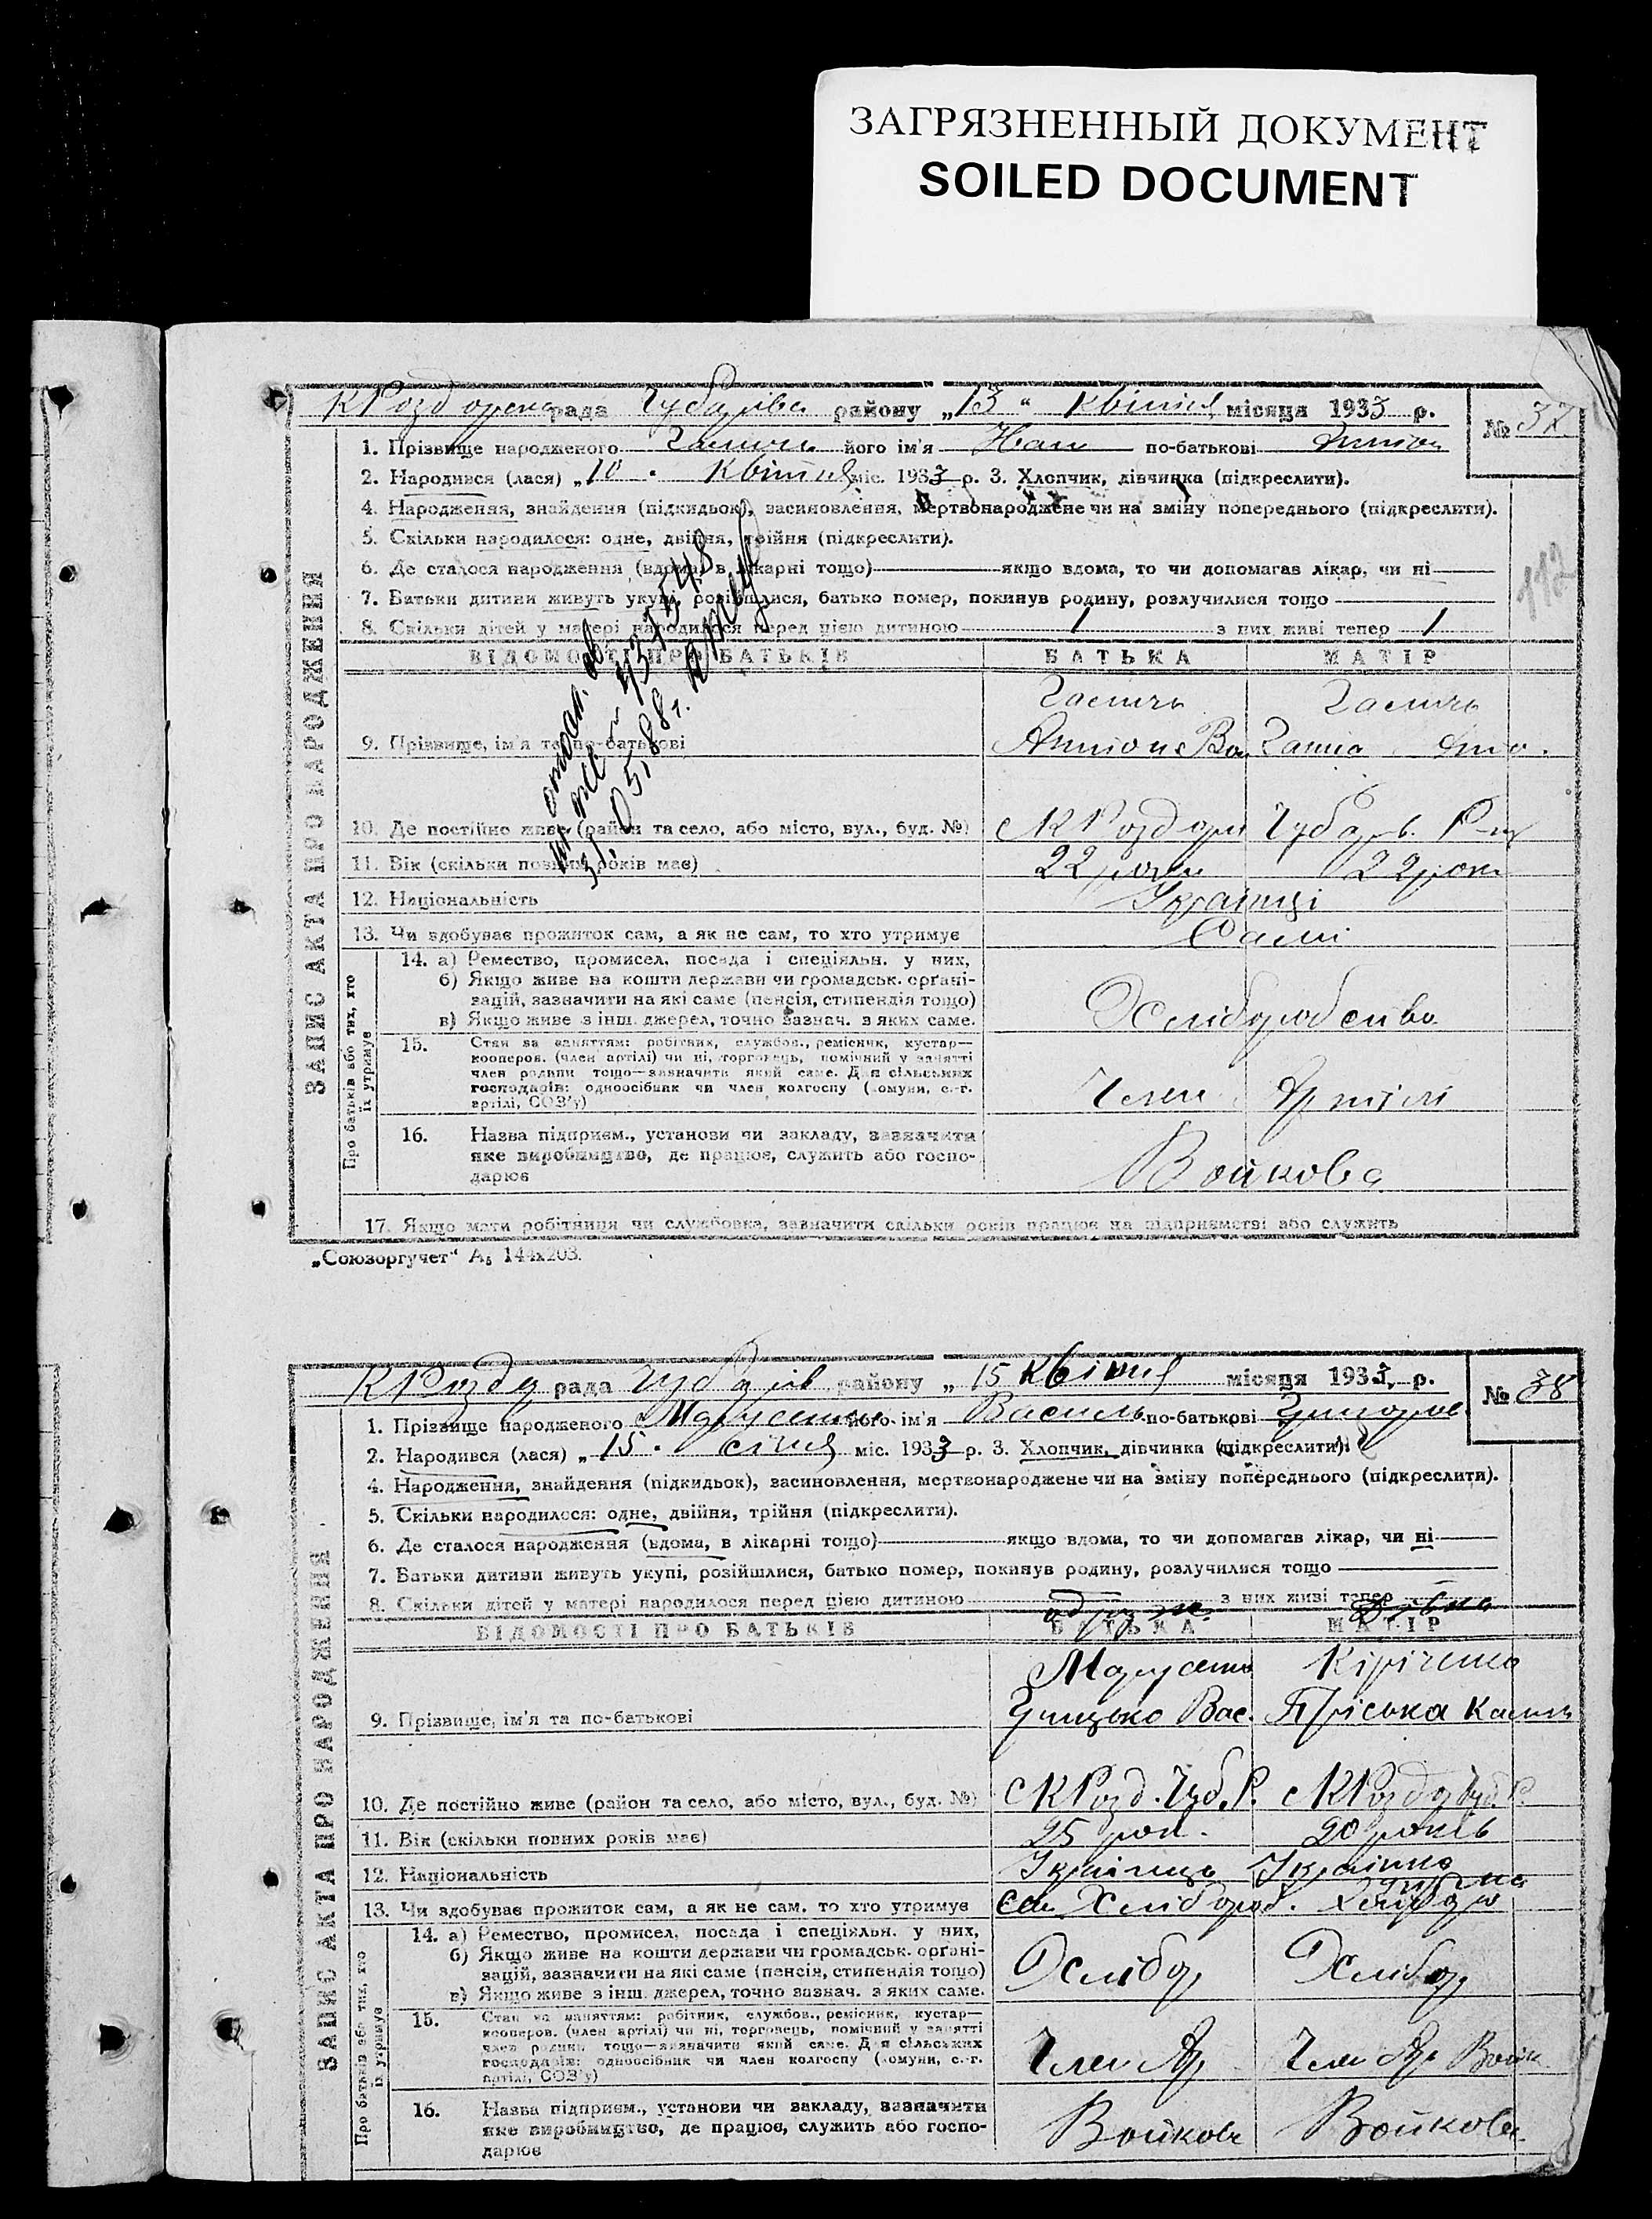 ЗАГРЯЗНЕННЫЙ ДОКУМЕНТ
SOILED DOCUMENT
рада района „13“ квітня місяця 1933 р.
№ 37
1. Прізвище народженого його ім'я Иван по-батькові
2. Народився (лася) „10 . квітня міс. 1933 р. 3. Хлопчик, дівчинка (підкреслити).
4. Народження, знайдення (підкидьок), засиновлення, мертвонароджене чи на зміну попереднього (підкреслити).
5. Скільки народилося: одне, двійня, трійня (підкреслити).
6. Де сталося народження (вдома, в лікарні тощо) якщо вдома, то чи допомагав лікар, чи ні
7. Батьки дитини живуть укупі, розійшлися, батько помер, покинув родину, розлучилися тощо
8. Скільки дітей у матері народилося перед цією дитиною 1 з них живі тепер 1
112
ВІДОМОСТІ ПРО БАТЬКІВ БАТЬКА МАТІР
9. Прізвище, ім'я та по-батькові
10. Де постійно живе (район та село, або місто, вул., буд. №)
11. Вік (скільки повних років має) 22 роки 22 роки
12. Національність Українці
13. Чи здобуває прожиток сам, а як не сам, то хто утримує Самі
14. а) Ремество, промисел, посада і спеціяльн. у них,
б) Якщо живе на кошти держави чи громадськ. орґані-
зацій, зазначити на які саме (пенсія, стипендія тощо)
в) Якщо живе з інш. джерел, точно зазнач. з яких саме.
Хліборобство
15. Стан за заняттям: робітник, службов., ремісник, кустар—
кооперов. (член артілі) чи ні, торговець, помічний у занятті
член родини тощо—зазначити який саме. Для сільських
господарів: одноосібник чи член колгоспу (комуни, с.-г.
артілі, СОЗ'у)
Член Артілі
16. Назва підприєм., установи чи закладу, зазначити
яке виробництво, де працює, служить або госпо-
дарює
Войкова
17. Якщо мати робітниця чи службовка, зазначити скільки років працює на підприємстві або служить
ЗАПИС АКТА ПРО НАРОДЖЕННЯ
Про батьків або тих, хто
їх утримує
„Союзоргучет“ А5 144х203.
рада району „15 квітня місяця 1933 р.
№ 38
1. Прізвище народженого його ім'я Василь по-батькові Григоров
2. Народився (лася) „15 . січня міс. 1933 р. 3. Хлопчик, дівчинка (підкреслити).
4. Народження, знайдення (підкидьок), засиновлення, мертвонароджене чи на зміну попереднього (підкреслити).
5. Скільки народилося: одне, двійня, трійня (підкреслити).
6. Де сталося народження (вдома, в лікарні тощо) якщо вдома, то чи допомагав лікар, чи ні
7. Батьки дитини живуть укупі, розійшлися, батько помер, покинув родину, розлучилися тощо
8. Скільки дітей у матері народилося перед цією дитиною з них живі тепер
ВІДОМОСТІ ПРО БАТЬКІВ БАТЬКА МАТІР
Кіріченко
9. Прізвище, ім'я та по-батькові Грицько Вас. Пріська
10. Де постійно живе (район та село, або місто, вул., буд. №)
11. Вік (скільки повних років має) 25 рок. 20 років
12. Національність Українець Українка
13. Чи здобуває прожиток сам, а як не сам, то хто утримує
14. а) Ремество, промисел, посада і спеціяльн. у них,
б) Якщо живе на кошти держави чи громадськ. орґані-
зацій, зазначити на які саме (пенсія, стипендія тощо)
в) Якщо живе з інш. джерел, точно зазнач. з яких саме.
Хлібор Хлібор
15. Стан за заняттям: робітник, службов., ремісник, кустар—
кооперов. (член артілі) чи ні, торговець, помічний у занятті
член родини тощо—зазначити який саме. Для сільських
господарів: одноосібник чи член колгоспу (комуни, с.-г.
артілі, СОЗ'у)
Член Ар Член Ар Войк
16. Назва підприєм., установи чи закладу, зазначити
яке виробництво, де працює, служить або госпо-
дарює
Войков Войкова
ЗАПИС АКТА ПРО НАРОДЖЕННЯ
Про батьків або тих, хто
їх утримує